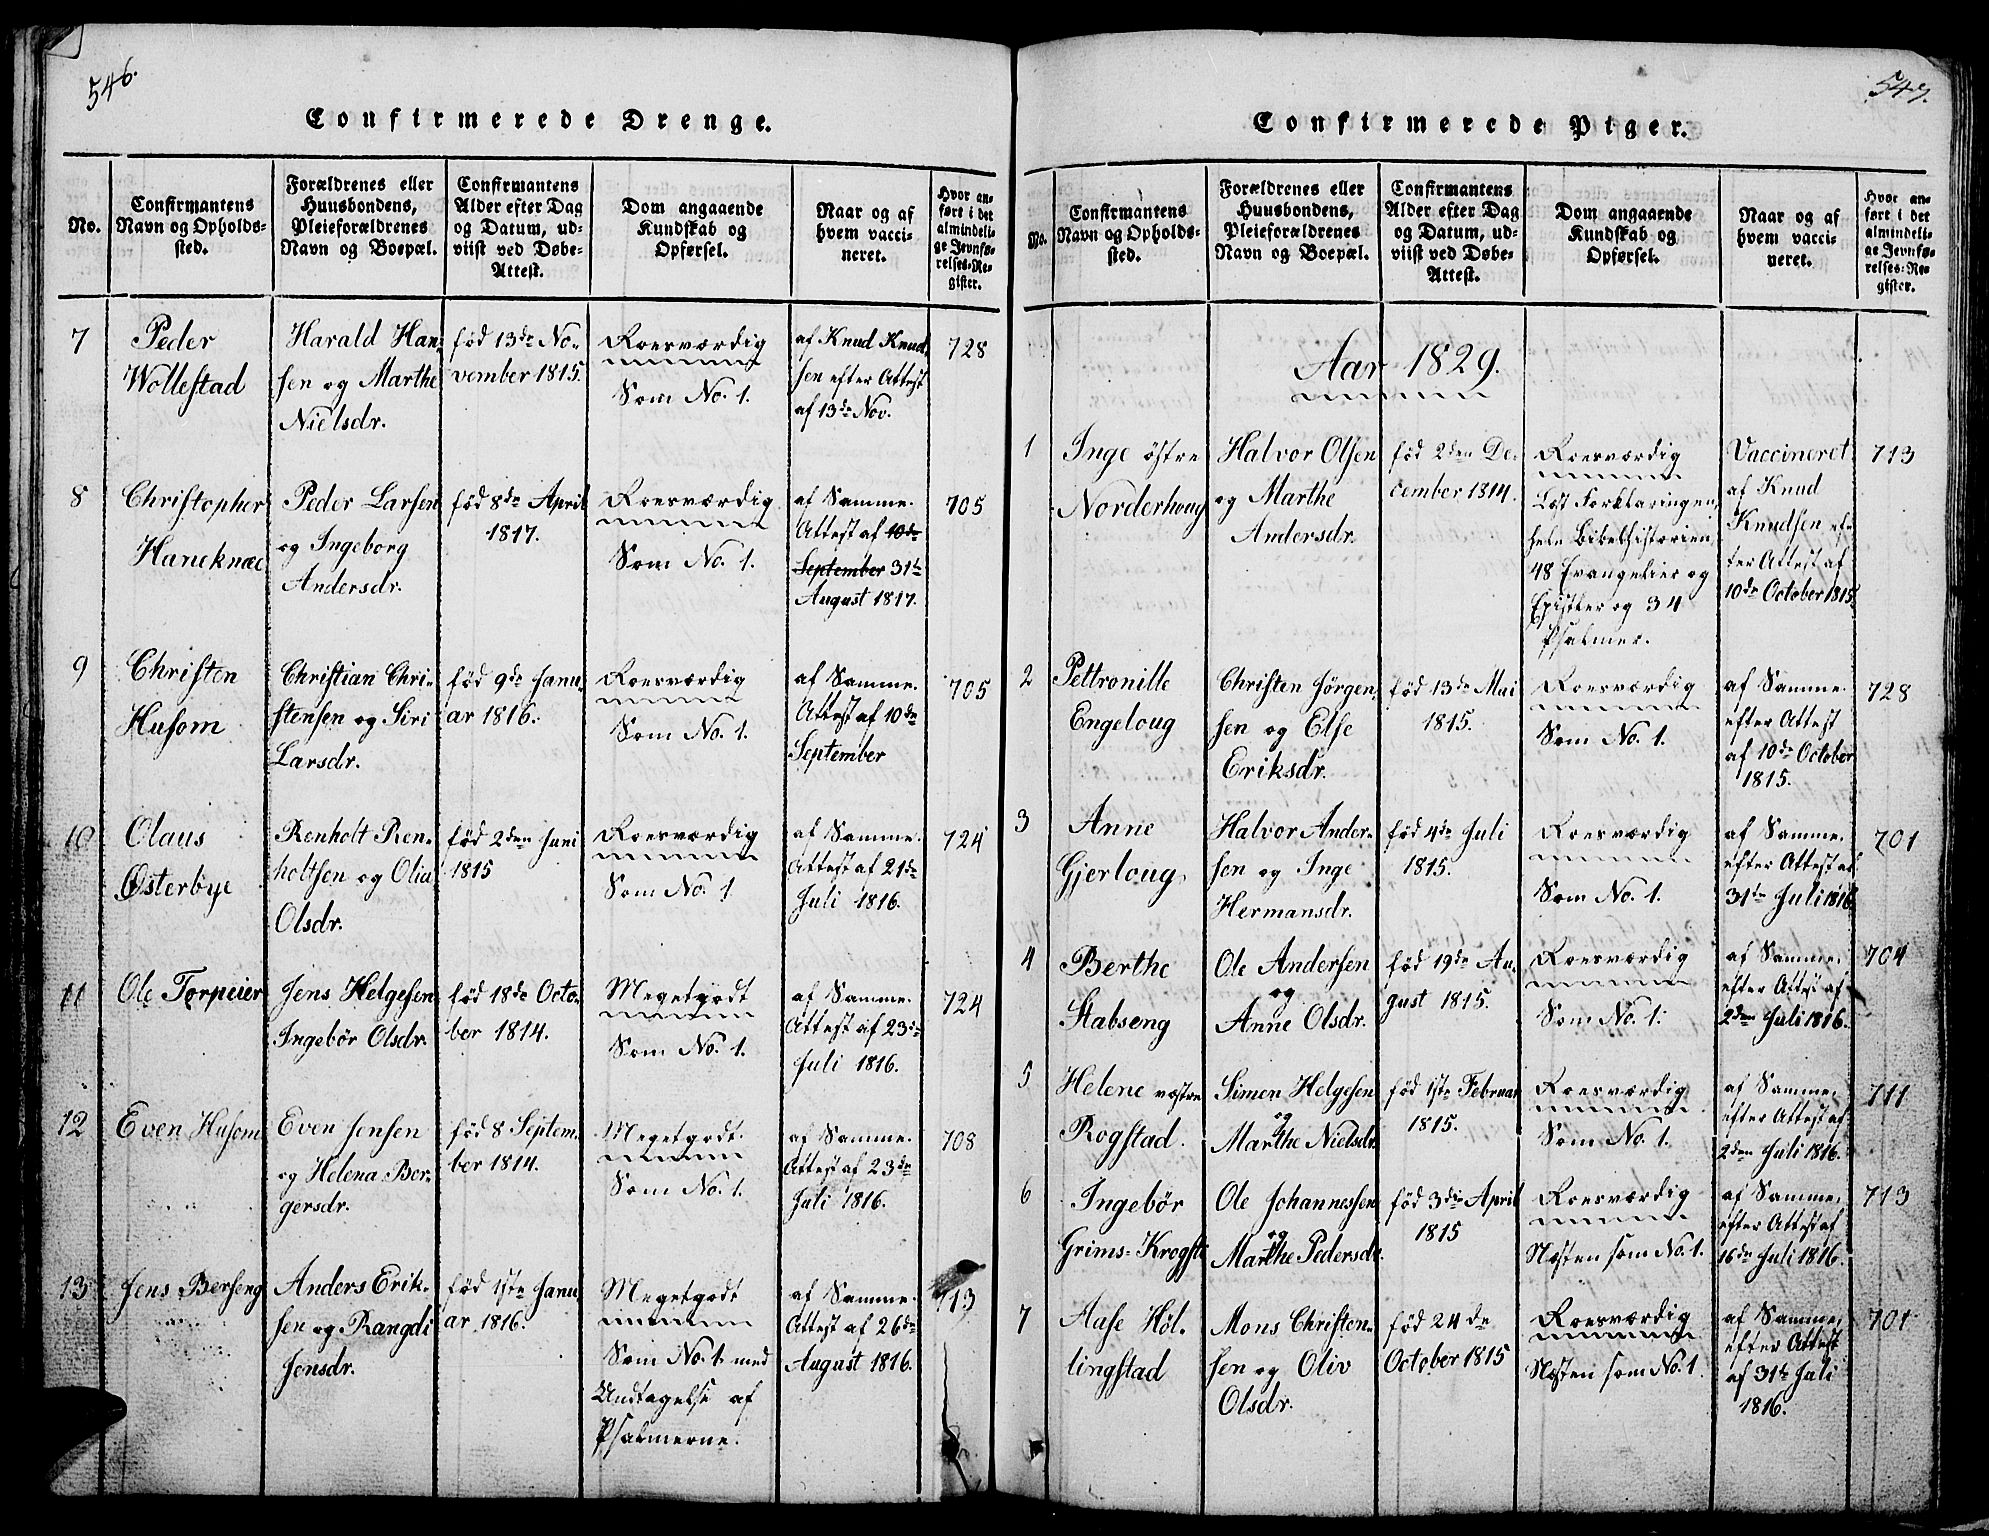 546.
Confirmerede Drenge.
No.
Confirmantens
Navn og Opholds-
sted.
Forældrenes eller
Huusbondens,
Pleieforældrenes
Navn og Boepæl.
Confirmantens
Alder efter Dag
og Datum, ud-
viist ved Døbe-
Attest.
Dom angaaende
Kundskab og
Opførsel.
Naar og af
hvem vacci-
neret.
Hvor an-
ført i det
almindeli-
ge Jevnfø-
relses-Re-
gister.
7
Peder
Wollestad
Harald Han-
sen og Marthe
Nielsdr.
fød 13de No-
vember 1815.
Roesværdig
Som No. 1.
af Knud Knud-
sen efter Attest
af 13de Nov.
728
8
Christopher
Haneknæ
Peder Larsen
og Ingeborg
Andersdr.
fød 8de April
1817.
Roesværdig
Som No. 1.
af Samme.
Attest af 10de
September 31te
August 1817.
705
9
Christen
Husom
Christian Chri-
stensen og Siri
Larsdr.
fød 9de Janu-
ar 1816.
Roesværdig
Som No. 1.
af Samme.
Attest af 10de
September
705
10
Olaus
Østerbye
Renholt Ren-
holtsen og Olia
Olsdr.
fød 2den Juni
1815
Roesværdig
Som No. 1
af Samme.
Attest af 21de
Juli 1816.
724
11
Ole Torpeier
Jens Helgesen
Ingebør Olsdr.
fød 18de Octo-
ber 1814.
Megetgodt
Som No. 1.
af Samme.
Attest af 23de
Juli 1816.
724
12
Even Husom
Even Jensen
og Helena Ber-
gersdr.
fød 8 Septem-
ber 1814.
Megetgodt.
Som No. 1.
af Samme.
Attest af 23de
Juli 1816.
708
13
Jens Berseng
Anders Erik-
sen og Rangdi
Jensdr.
fød 1ste Janu-
ar 1816.
Megetgodt
Som No. 1. med
Undtagelse af
Psalmerne.
af Samme.
Attest af 26de
August 1816.
713
547.
Confirmerede Piger.
No.
Confirmantens
Navn og Opholds-
sted.
Forældrenes eller
Huusbondens,
Pleieforældrenes
Navn og Boepæl.
Confirmantens
Alder efter Dag
og Datum, ud-
viist ved Døbe-
Attest.
Dom angaaende
Kundskab og
Opførsel.
Naar og af
hvem vacci-
neret.
Hvor an-
ført i det
almindeli-
ge Jevnfø-
relses-Re-
gister.
Aar 1829.
1
Inge østre
Norderhoug
Halvor Olsen
og Marthe
Andersdr.
fød 2den De-
cember 1814.
Roesværdig
Læst Forklaringen,
hele Bibelhistorien,
48 Evangelier og
Epistler og 34
Psalmer.
Vaccineret
af Knud
Knudsen ef-
ter Attest af
10de October 1815.
713
2
Pettronille
Engeloug
Christen Jørgen-
sen og Else
Eriksdr.
fød 13de Mai
1815.
Roesværdig
Som No. 1.
af Samme.
efter Attest
af 10de October
1815.
728
3
Anne
Gjerloug
Halvor Ander-
sen og Inge
Hermansdr.
fød 4de Juli
1815.
Roesværdig
Som No. 1.
af Samme.
efter Attest af
31te Juli 1816.
701
4
Berthe
Stabseng
Ole Andersen
og
Anne Olsdr.
fød 19de Au-
gust 1815.
Roesværdig
Som No. 1.
af Samme.
efter Attest af
2den Juli 1816.
704
5
Helene væstre
Rogstad.
Simen Helgesen
og
Marthe Nielsdr.
fød 1ste Februar
1815.
Roesværdig
Som No. 1.
af Samme,
efter Attest af
2den Juli 1816.
711
6
Ingebør
Grims-Krogsti
Ole Johannessen
og
Marthe Pedersdr.
fød 3die April
1815
Roesværdig
Næsten som No. 1.
af Samme,
efter Attest af
16de Juli 1816.
713
7
Aase Høl-
lingstad
Mons Christen-
sen og Oliv
Olsdr.
fød 24de
October 1815
Roesværdig
Næsten som No. 1.
af Samme,
efter Attest
af 31te Juli
1816.
701